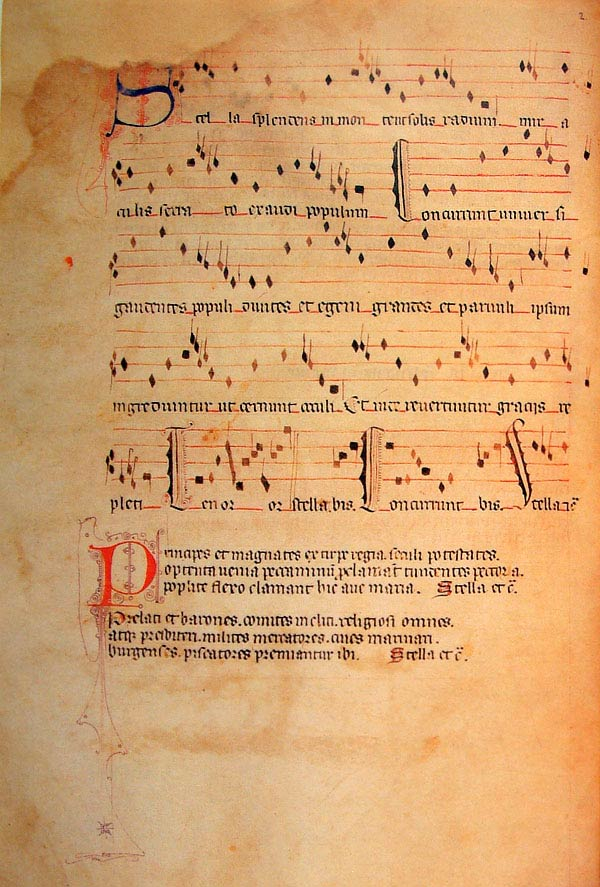 2
Stel la splendens in mon te ut solis radium mir a
culis serra to exaudi populum Concurrunt univer si
gaudentes populi diuites et egeni grandes et paruuli ipsum
ingrediuntur ut cernunt oculi Et inde revertuntur graciis re
pleti Tenor or stella bis. Concurrunt bis. Stella
Principes et magnates extirpe regia. seculi potestates.
optenta uenia peccaminū tundentes pectora.
poplite flexo clamant hic aue maria. Stella et c̄.
Prelati et barones. comites incliti. religiosi omnes.
atqꝫ presbiteri. milites mercatores. ciues marinari.
burgenses. piscatores premiantur ibi. Stella et c̄.